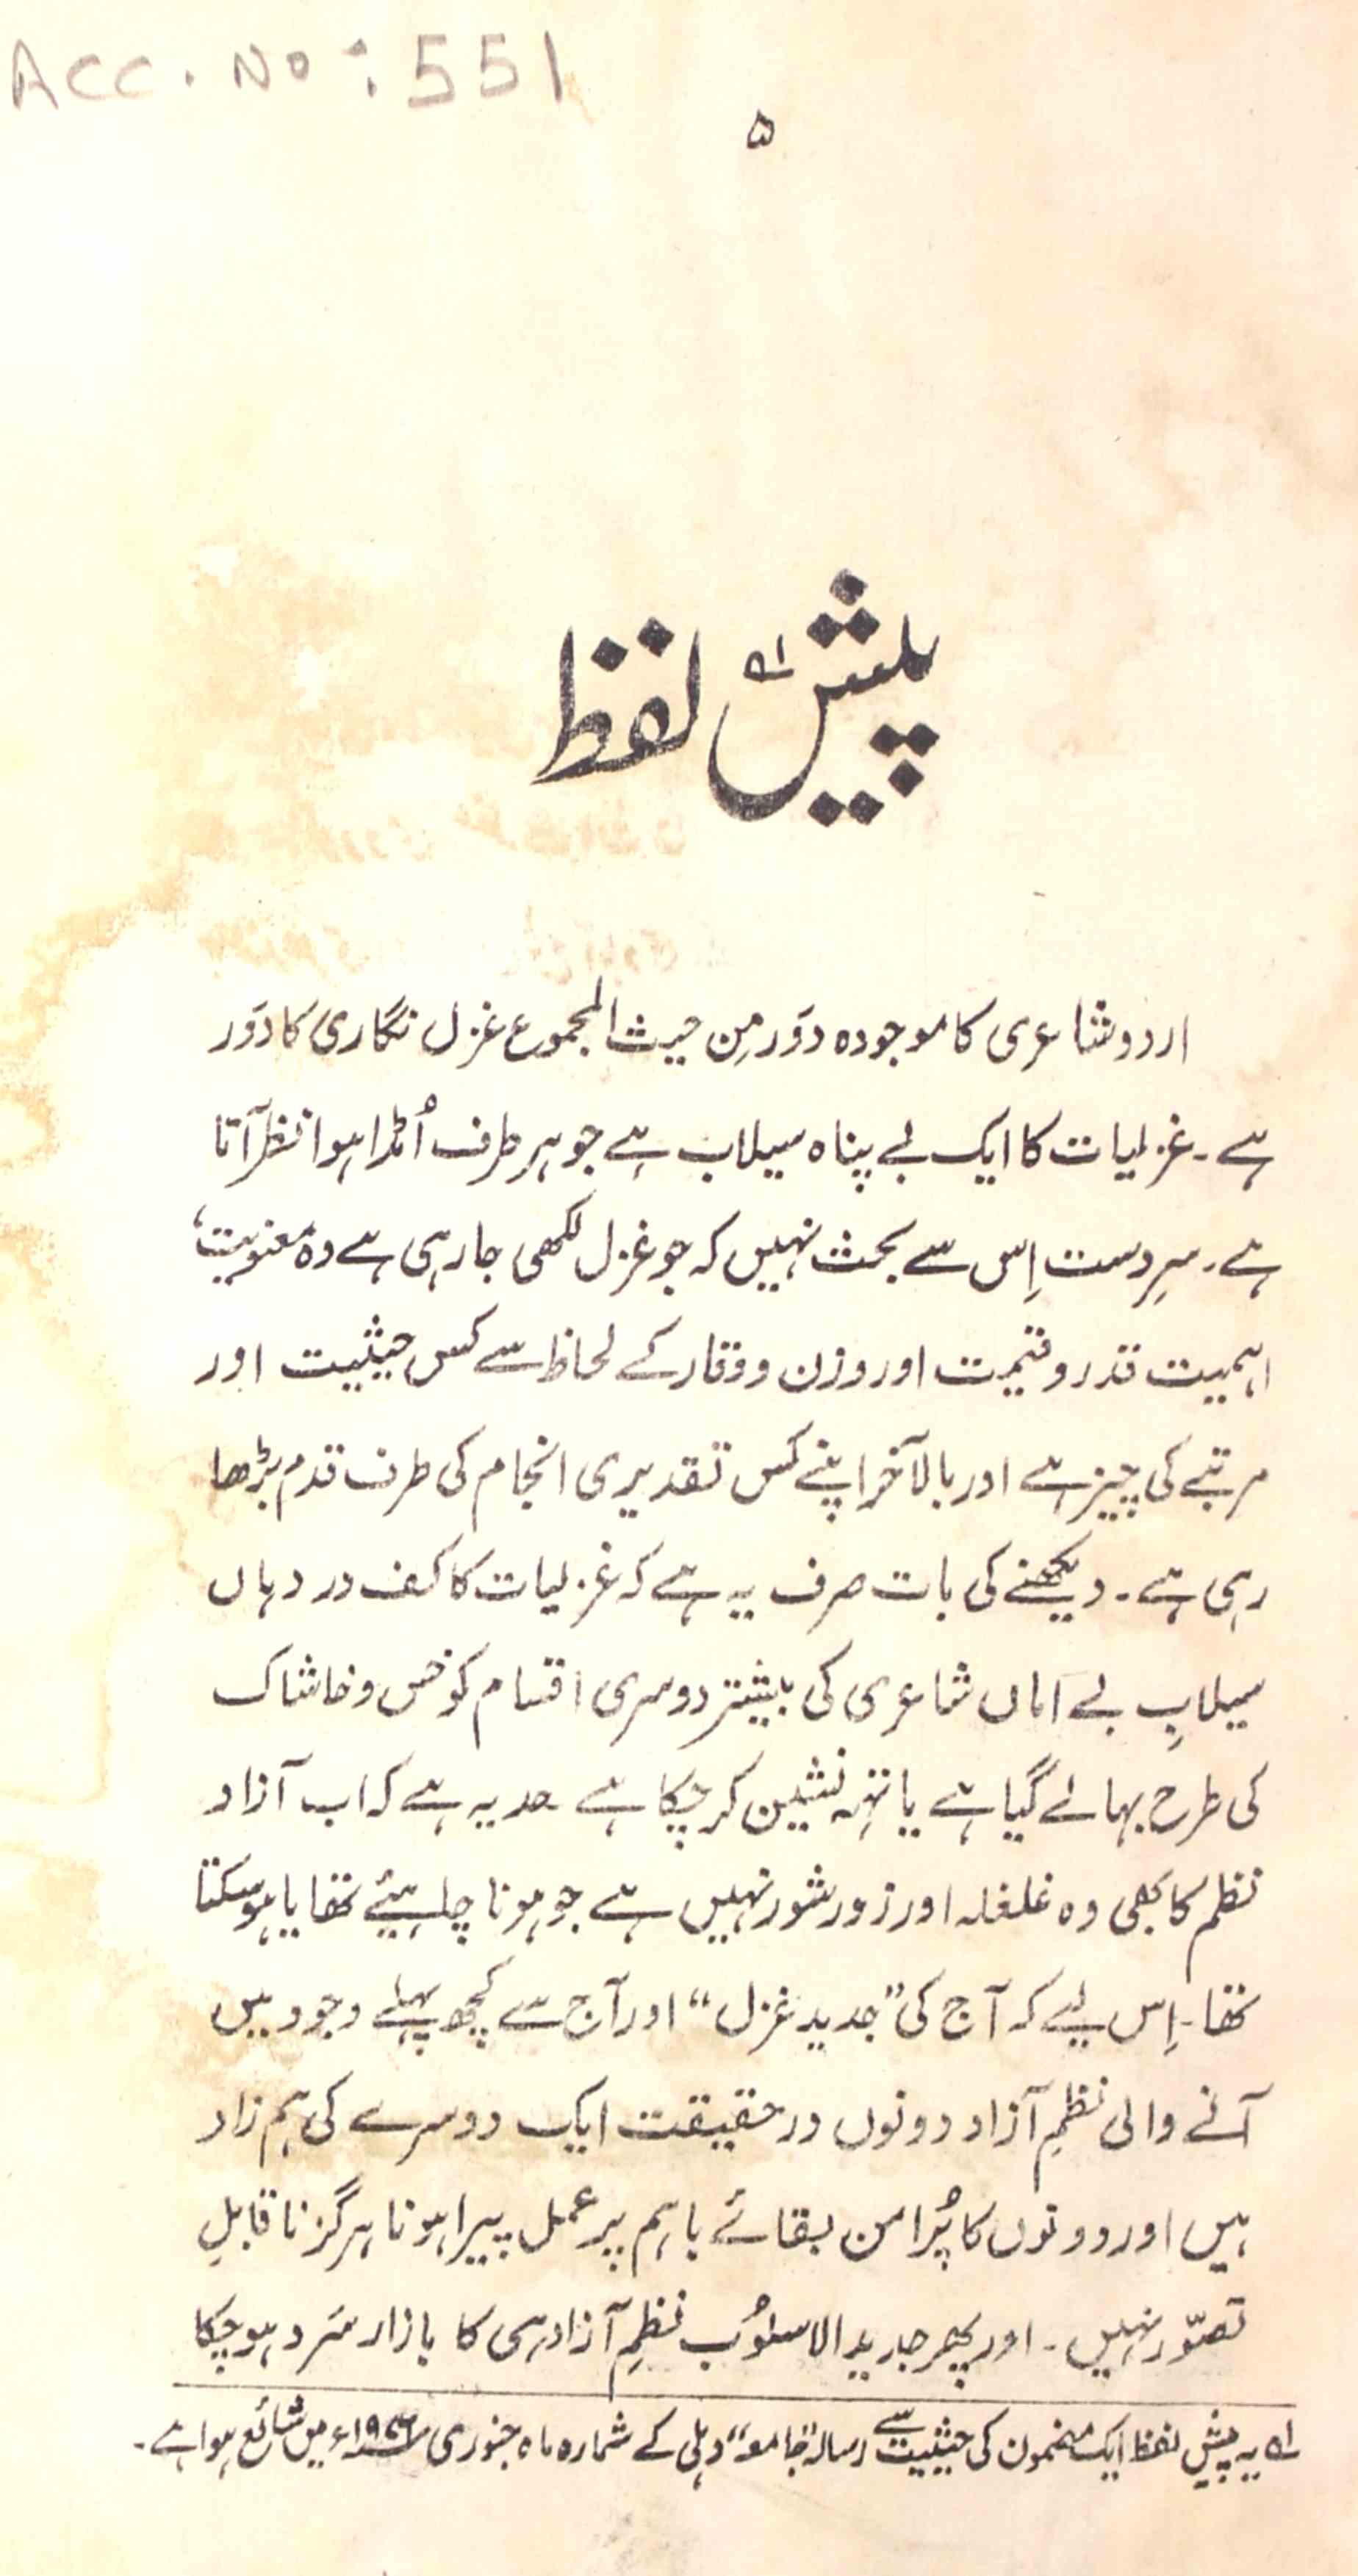 Acc. No: 551
۵
پیش لفظ ؎۱
اردو شاعری کا موجودہ دَور مِن حیث المجموع غزل نگاری کا دَور
ہے۔ غزلیات کا ایک بے پناہ سیلاب ہے جو ہر طرف اُمڈا ہوا نظر آتا
ہے۔ سرِ دست اِس سے بحث نہیں کہ جو غزل لکھی جا رہی ہے وہ معنویت،
اہمیت قدر و قیمت اور وزن و وقار کے لحاظ سے کس حیثیت اور
مرتبے کی چیز ہے اور بالآخر اپنے کس تقدیری انجام کی طرف قدم بڑھا
رہی ہے۔ دیکھنے کی بات صرف یہ ہے کہ غزلیات کا کف در دہاں
سیلابِ بے اَماں شاعری کی بیشتر دوسری اقسام کو خس و خاشاک
کی طرح بہا لے گیا ہے یا تہہ نشین کر چکا ہے حد یہ ہے کہ اب آزاد
نظم کا بھی وہ غلغلہ اور زور شور نہیں ہے جو ہونا چاہیئے تھا یا ہو سکتا
تھا۔ اِس لیے کہ آج کی ”جدید غزل“ اور آج سے کچھ پہلے وجود میں
آنے والی نظمِ آزاد دونوں در حقیقت ایک دوسرے کی ہم زاد
ہیں اور دونوں کا پُر امن بقائے باہم پر عمل پیرا ہونا ہرگز نا قابلِ
تصوّر نہیں۔ اور پھر جدید الاسلُوب نظمِ آزاد ہی کا بازار سَرد ہو چکا
؎۱ یہ پیش لفظ ایک مضمون کی حیثیت سے رسالہ ”جامعہ“ دہلی کے شمارہ ماہ جنوری میں شائع ہوا ہے۔